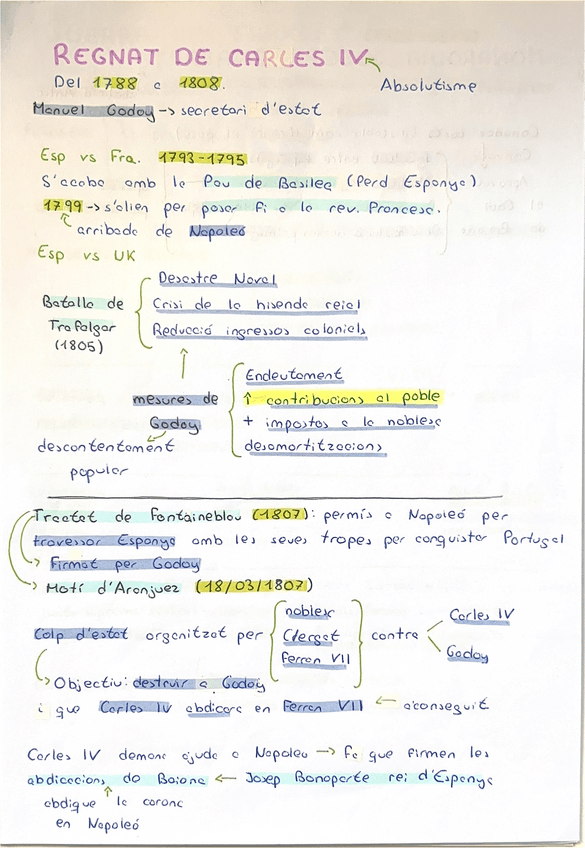 REGNAT DE CARLES IV
Del 1788 a 1808.
Absolutisme
Manuel Godoy -> secretari d'estat
Esp vs Fra. 1793-1795
S'acaba amb la Pau de Basilea (Perd Espanya)
1799 -> s'alien per posar fi a la rev. Francesc.
arribada de Napoleó
Esp vs UK
Batalla de Trafalgar (1805)
Desastre Naval
Crisi de la hisenda reial
Reducció ingressos colonials
mesures de Godoy
Endeutament
↑ contribucions al poble
+ impostos a la noblesa
desamortitzacions
descontentament
popular
Tractat de Fontaineblau (1807): permís a Napoleó per
travessar Espanya amb les seves tropes per conquistar Portugal
Firmat per Godoy
Motí d'Aranjuez (18/03/1807)
Colp d'estat organitzat per
noblesa
Clergat
Ferran VII
contra
Carles IV
Godoy
Objectiu: destruir a Godoy
i que Carles IV abdicara en Ferran VII ← aconseguit
Carles IV demana ajuda a Napoleo → fa que firmen les
abdicacions de Baiona ← Josep Bonaparte rei d'Espanya
abdiqua ↑ la corona
en Napoleó